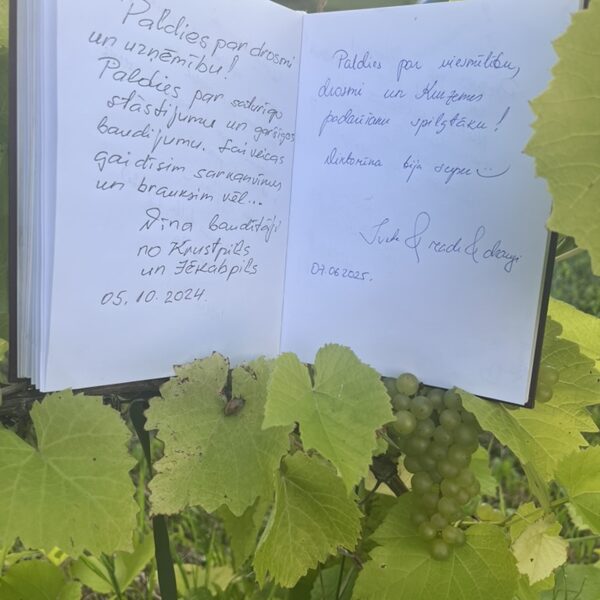 Paldies par drosmi
un uzņēmību!
Paldies par saturīgo
stāstījumu un garšīgos
baudījumu. Lai veicas
gaidīsim sarkanvīnus
un brauksim vēl...
Vīna baudītāji
no Krustpils
un Jēkabpils
05.10.2024.
Paldies par viesmīlību,
drosmi un Kurzemes
padarīšanu spilgtāku!
bija super
& &
07.06.2025.